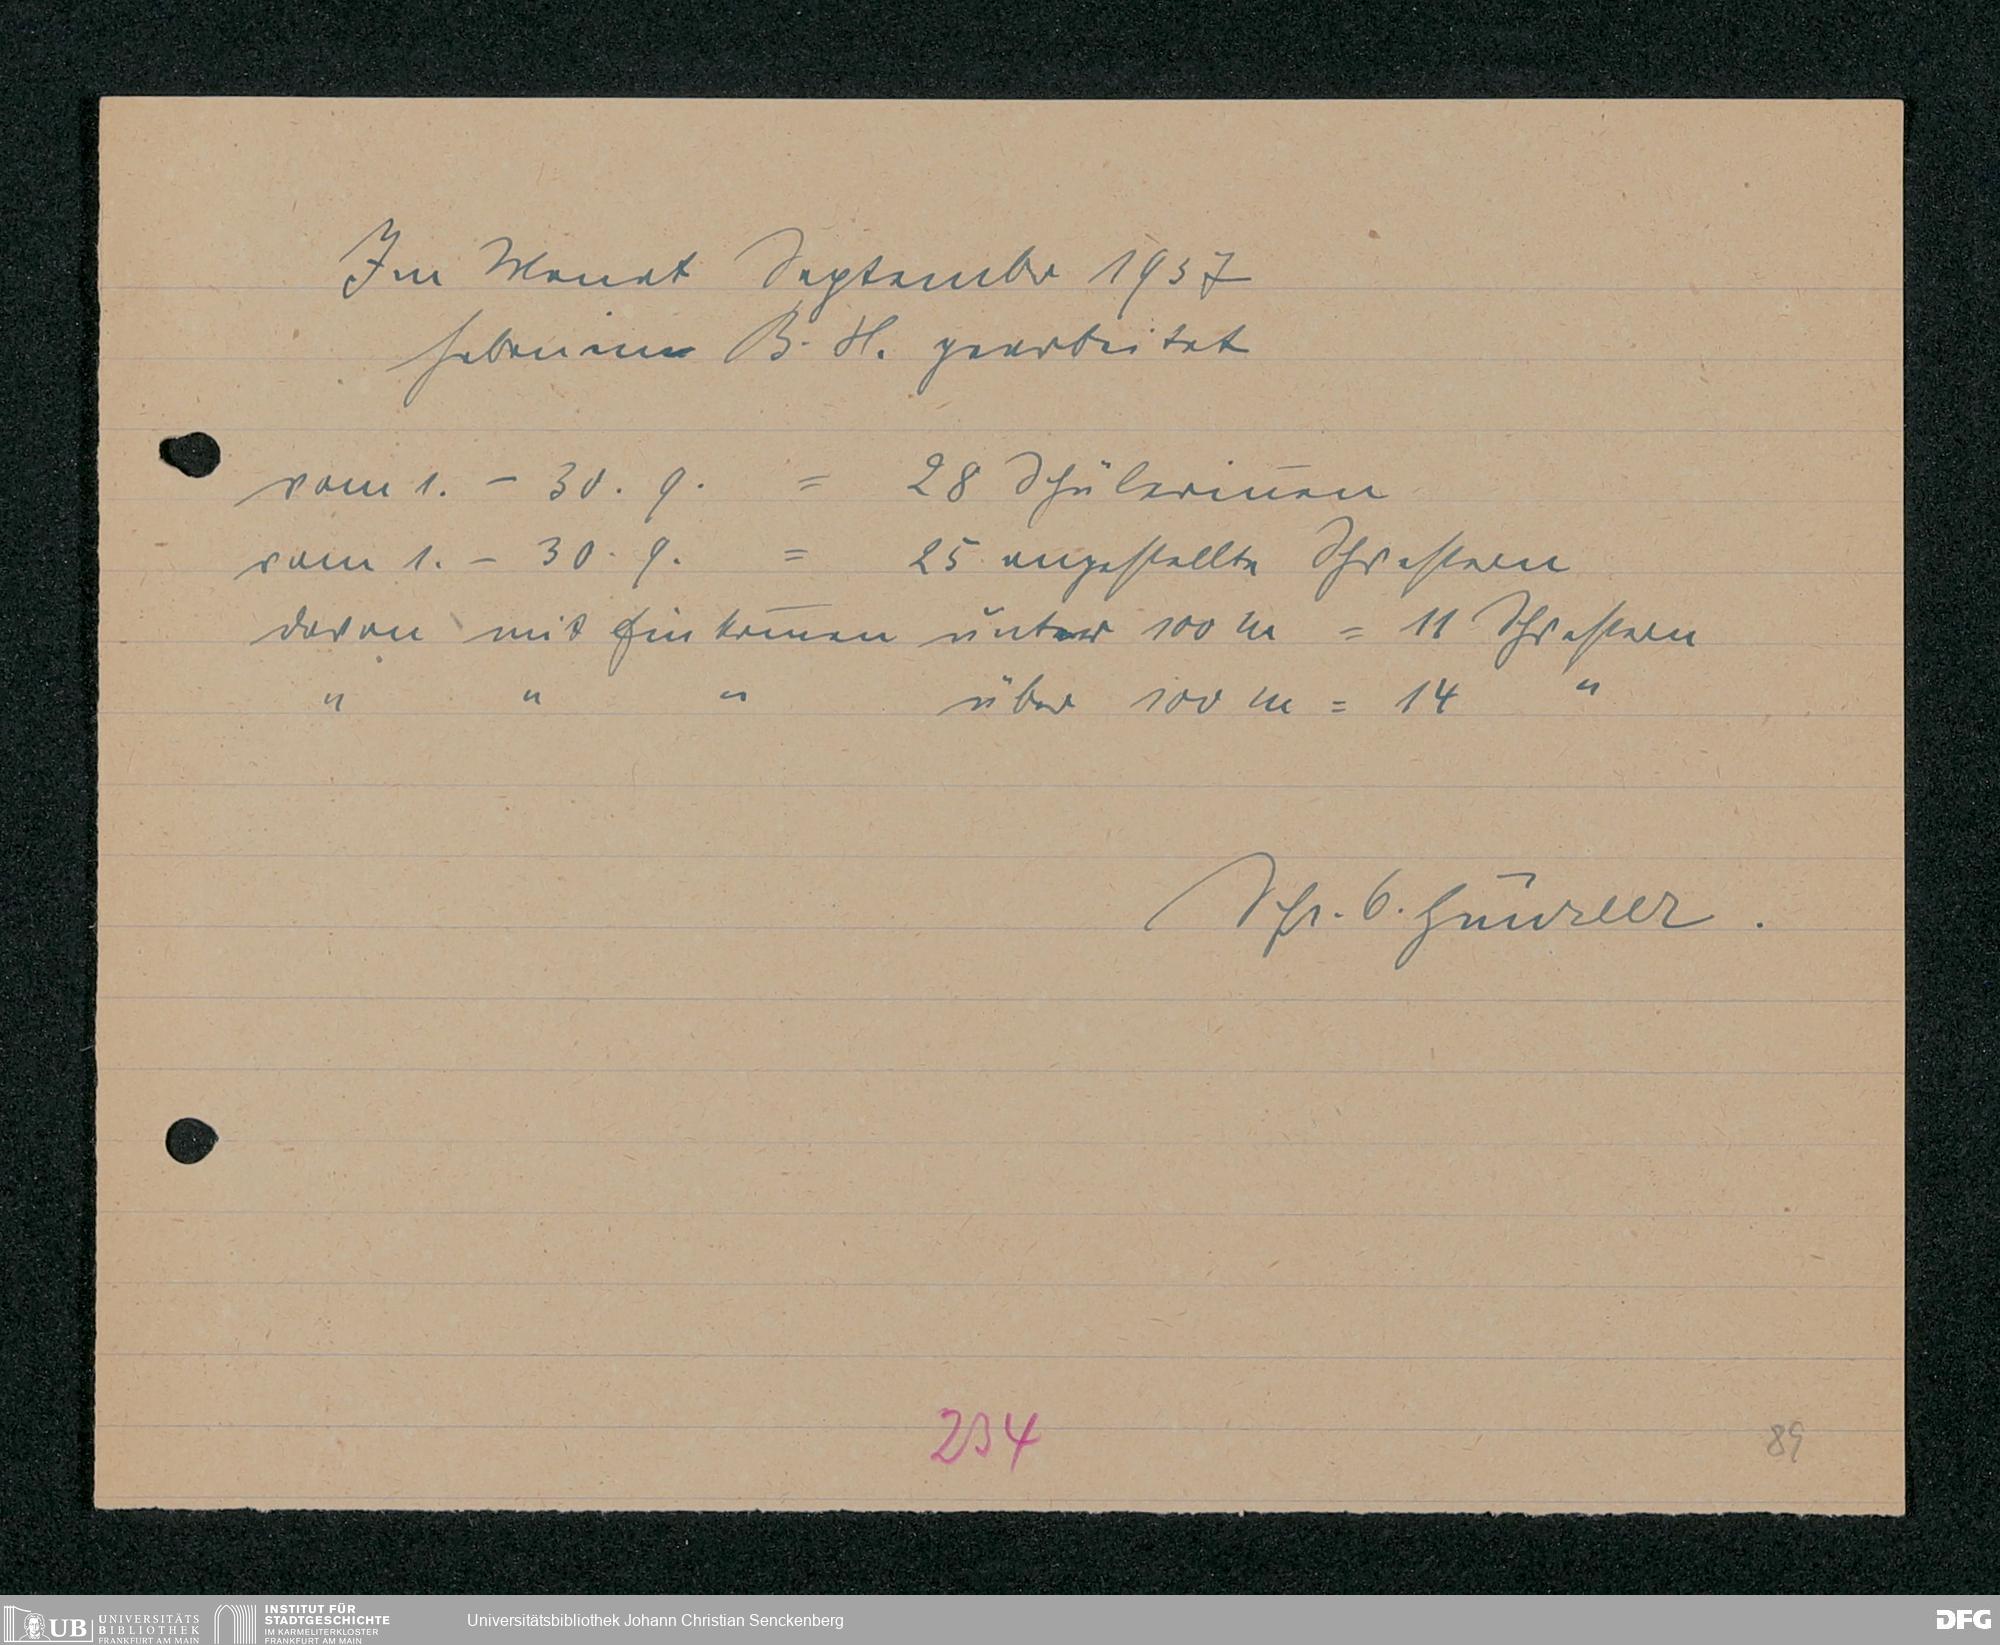 Im Monat September 1937
haben im B. H. gearbeitet
vom 1. – 30. 9. = 28 Schülerinnen
vom 1. – 30. 9. = 25 angestellte Schwestern
davon mit Einkommen unter 100 M = 11 Schwestern
" " " über 100 M = 14 "
Schw.
234
89
UB UNIVERSITÄTS BIBLIOTHEK FRANKFURT AM MAIN
INSTITUT FÜR STADTGESCHICHTE IM KARMELITERKLOSTER FRANKFURT AM MAIN
Universitätsbibliothek Johann Christian Senckenberg
DFG